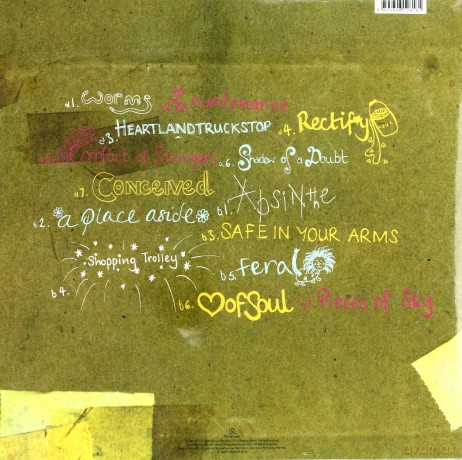 a1. worms
a2. Countenance
a3. HEARTLANDTRUCKSTOP
a4. Rectify
a5. Comfort of Strangers
a6. Shadow of a Doubt
a7. Conceived
b1. Absinthe
b2. a place aside
b3. SAFE IN YOUR ARMS
b4. Shopping Trolley
b5. feral
b6. ♥ofSoul
b7. Pieces of Sky